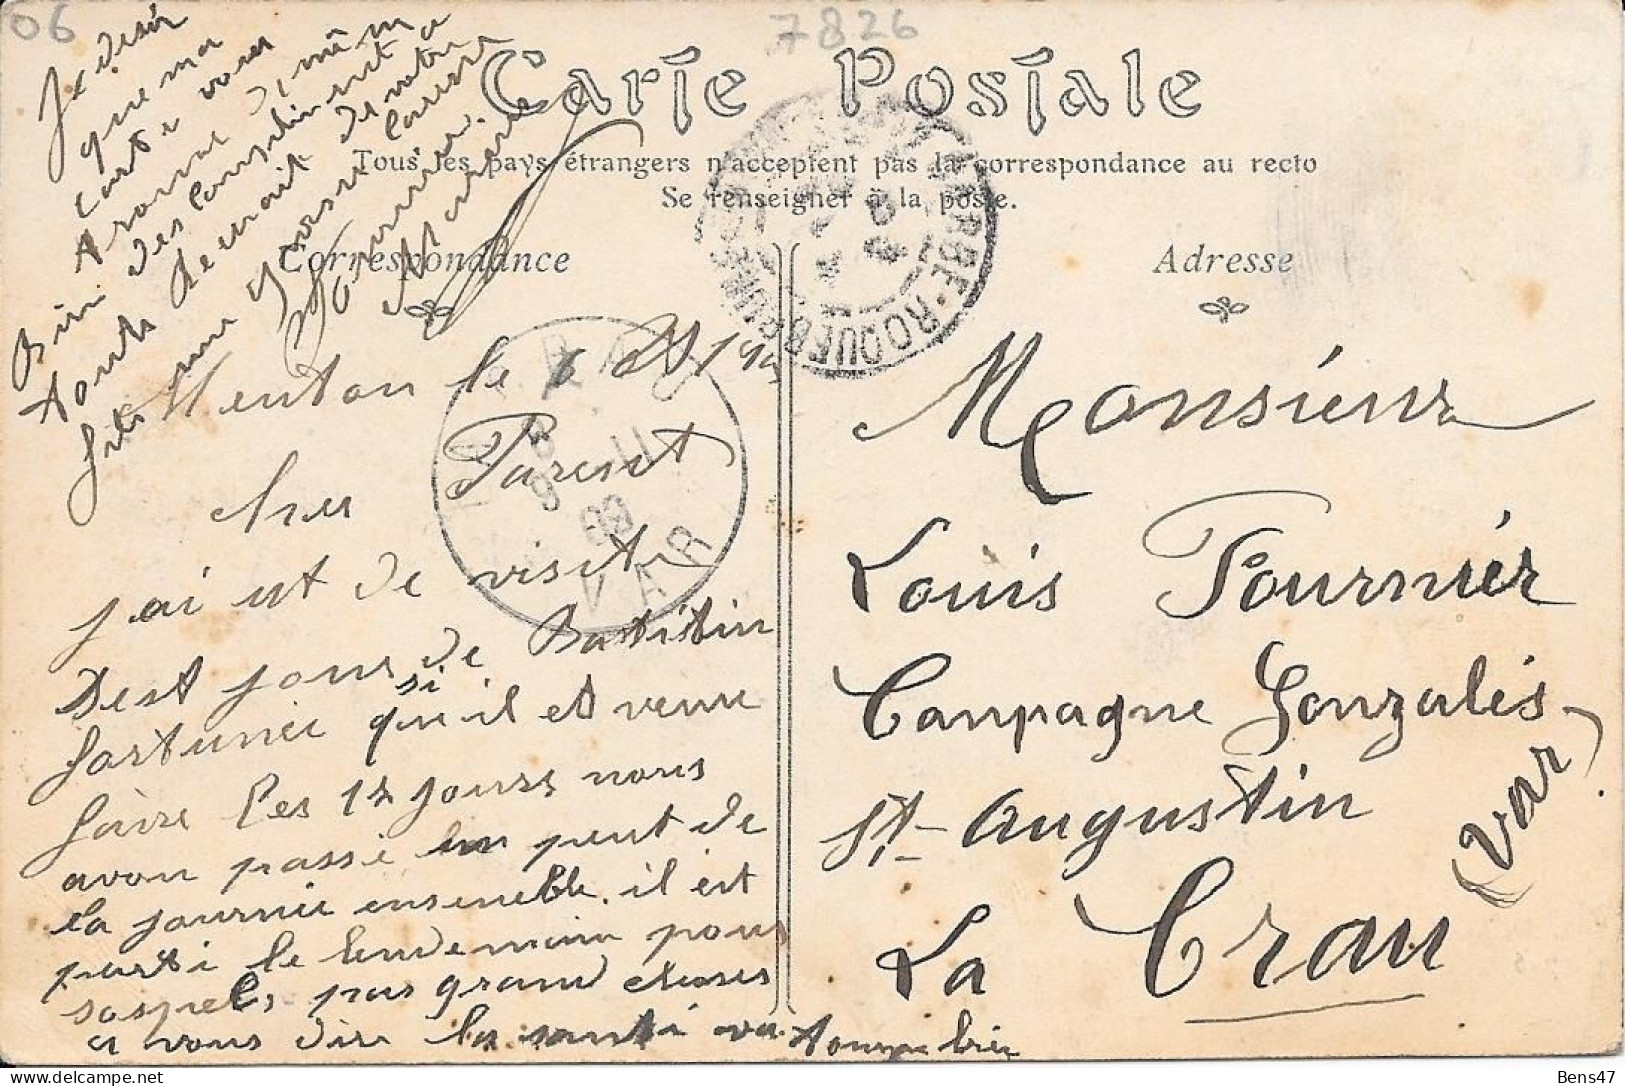 06
7826
Carte Postale
Tous les pays étrangers n'acceptent pas la correspondance au recto
Se renseigner à la poste.
Correspondance
Adresse
Je désir
que ma
carte vous
trouve de même
Bien des Compliment a
toute devait de votre
fils
Fournier.
Marius
Menton le 6
cher Parent
j'ai ut de visite
Dest jour de Batistin
fortunée si qu'il et venu
faire les 17 jours nous
avon passé un peut de
la journée ensemble. il est
parti le lendemain pour
sospels, pas grand choses
a vous dire la santé va toujour bien
Monsieur
Louis Fournier
Campagne Gonzalés
St-Augustin
La Crau
(Var)
ROQUEBRUNE
LA CRAU
VAR
Bens47